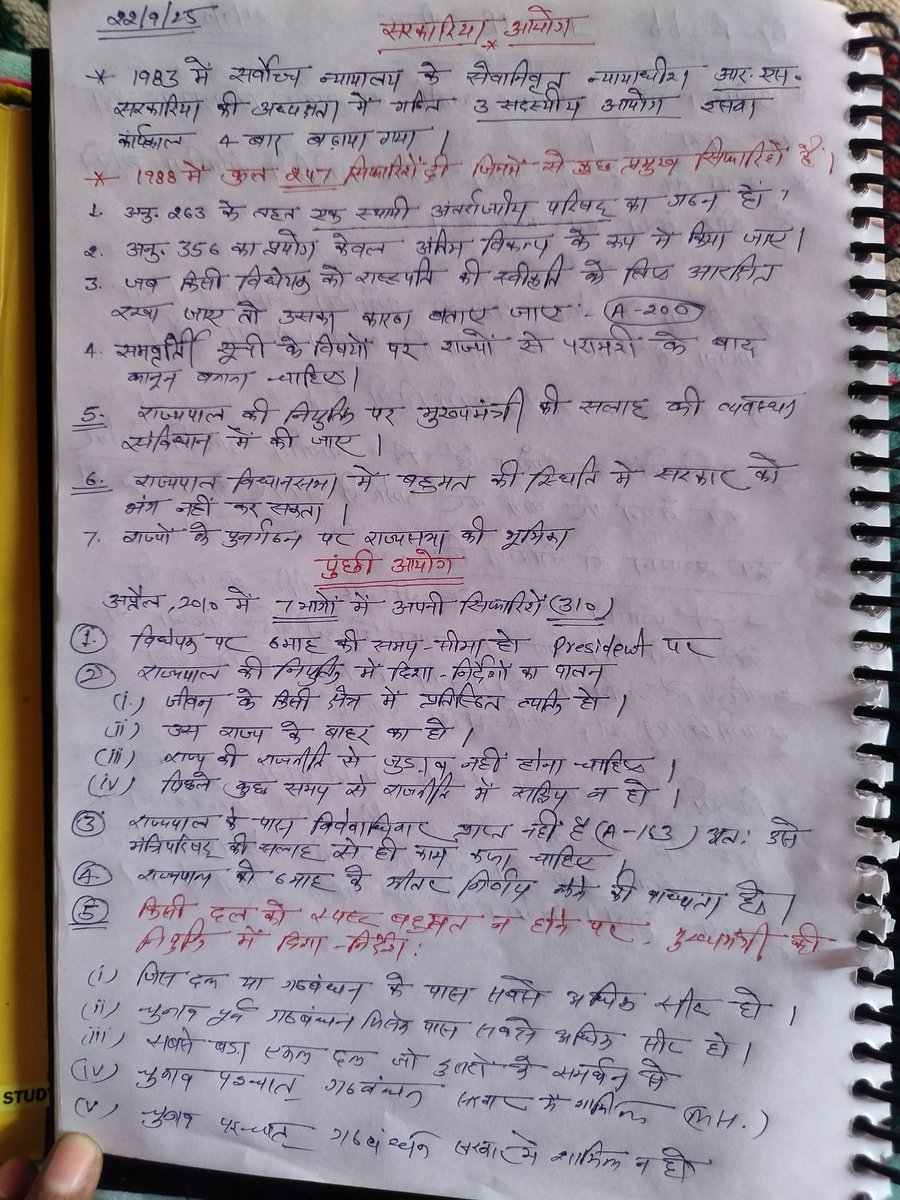 22/9/25
सरकारिया आयोग
* 1983 में सर्वोच्च न्यायालय के सेवानिवृत न्यायाधीश आर. एस.
सरकारिया की अध्यक्षता में गठित 3 सदस्यीय आयोग इसका
कार्यकाल 4 बार बढ़ाया गया।
* 1988 में कुल 247 सिफारिशें दी जिनमें से कुछ प्रमुख सिफारिशें हैं।
1. अनु. 263 के तहत एक स्थायी अंतर्राज्यीय परिषद् का गठन हो।
2. अनु. 356 का प्रयोग केवल अंतिम विकल्प के रूप में किया जाए।
3. जब किसी विधेयक को राष्ट्रपति की स्वीकृति के लिए आरक्षित
रखा जाए तो उसका कारण बताए जाए - (A-200)
4. समवर्ती सूची के विषयों पर राज्यों से परामर्श के बाद
कानून बनाना चाहिए।
5. राज्यपाल की नियुक्ति पर मुख्यमंत्री की सलाह की व्यवस्था
संविधान में की जाए।
6. राज्यपाल विधानसभा में बहुमत की स्थिति में सरकार को
भंग नहीं कर सकता।
7. राज्यों के पुनर्गठन पर राज्यसभा की भूमिका
पुंछी आयोग
अप्रैल, 2010 में 7 भागों में अपनी सिफारिशें (310)
① विधेयक पर 6 माह की समय-सीमा हो President पर
② राज्यपाल की नियुक्ति में दिशा-निर्देशों का पालन
(i.) जीवन के किसी क्षेत्र में प्रतिष्ठित व्यक्ति हो।
(ii) उस राज्य के बाहर का हो।
(iii) राज्य की राजनीति से जुड़ाव नहीं होना चाहिए।
(iv) पिछले कुछ समय से राजनीति में सक्रिय न हो।
③ राज्यपाल के पास विवेकाधिकार प्राप्त नहीं है (A-163) अतः उसे
मंत्रिपरिषद् की सलाह से ही काम करना चाहिए।
④ राज्यपाल को 6 माह के भीतर निर्णय लेने की बाध्यता हो।
⑤ किसी दल को स्पष्ट बहुमत न होने पर मुख्यमंत्री की
नियुक्ति में दिशा-निर्देश:
(i) जिस दल या गठबंधन के पास सबसे अधिक सीट हो।
(ii) चुनाव पूर्व गठबंधन जिसके पास सबसे अधिक सीट हो।
(iii) सबसे बड़ा एकल दल जो दूसरों के समर्थन से
(iv) चुनाव पश्चात् गठबंधन सरकार में शामिल (M.H.)
(v) चुनाव पश्चात् गठबंधन सरकार में शामिल न हो
STUD